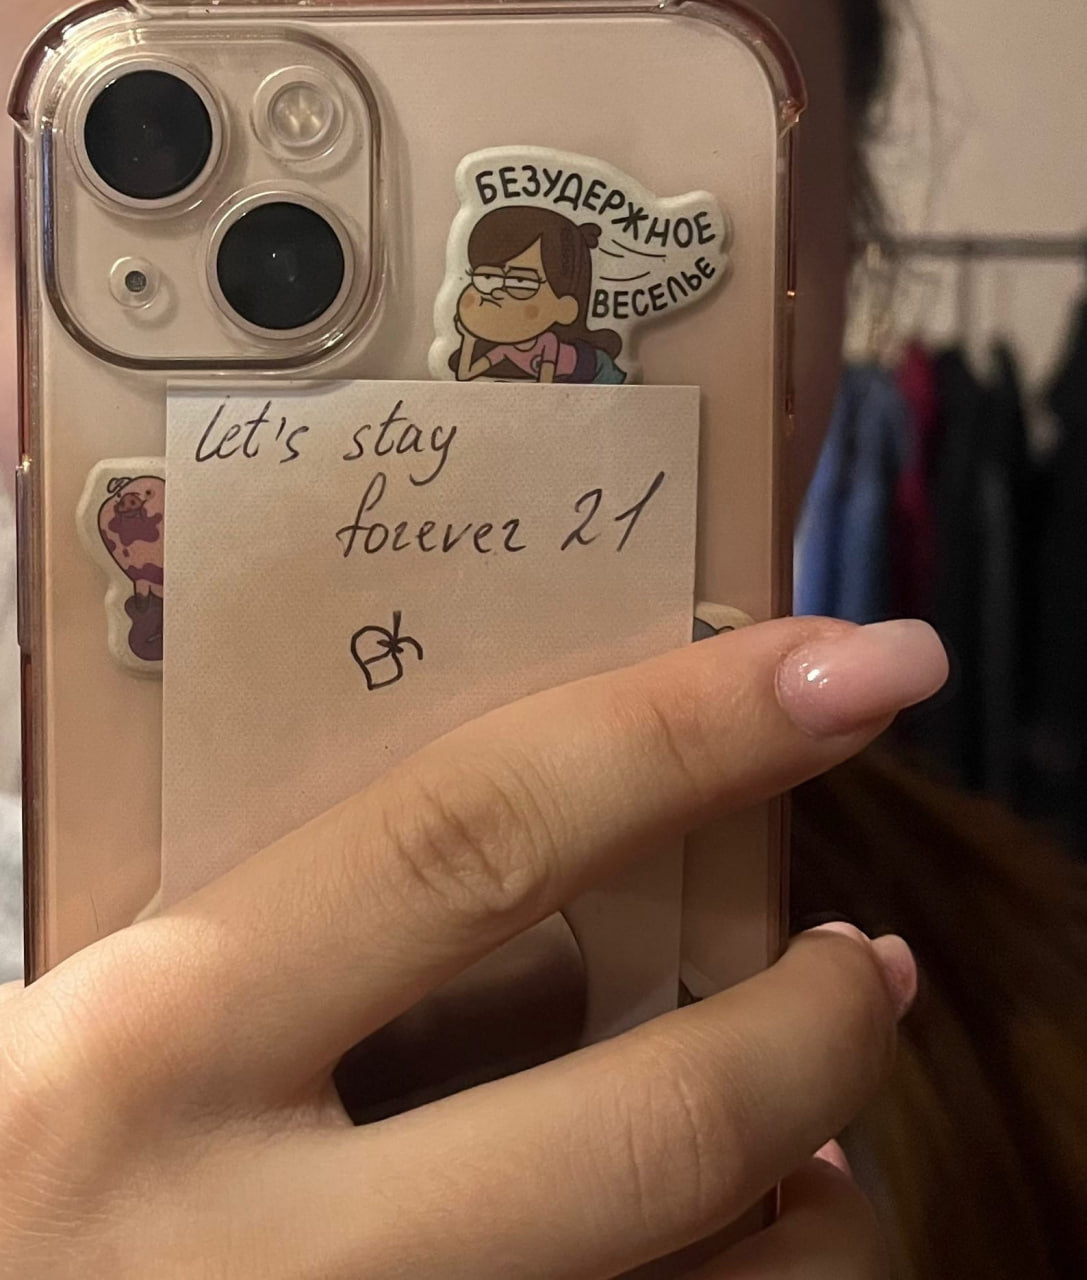 БЕЗУДЕРЖНОЕ
ВЕСЕЛЬЕ
let's stay
forever 21